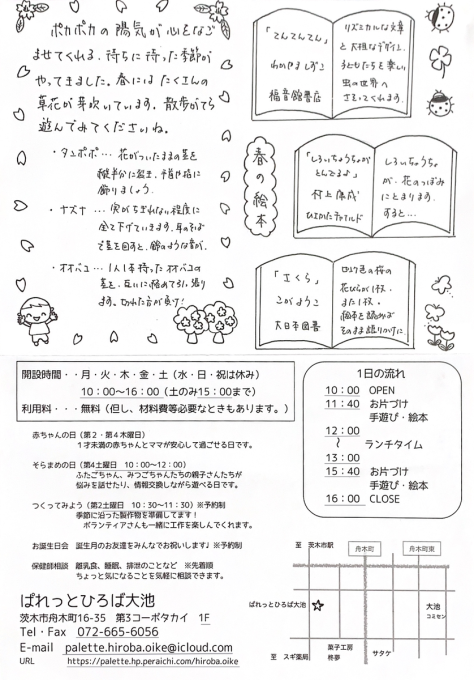 ポカポカの陽気が心をなご
ませてくれる、待ちに待った季節が
やってきました。春にはたくさんの
草花が芽吹いています。散歩がてら
遊んでみてくださいね。
・タンポポ… 花がついたままの茎を
縦半分に裂き、手首や指に
飾りましょう。
・ナズナ … 実がちぎれない程度に
全て下げていきます。耳のそば
で茎を回すと、鈴のような音が。
・オオバコ… 1人1本持ったオオバコの
茎を、互いに絡めて引っ張り
ます。切れた方が負け!
「てんてんてん」
わかやましずこ
福音館書店
リズミカルな文章
と大胆なデザイン。
子どもたちを楽しい
虫の世界へ
さそってくれます。
春の絵本
「しろいちょうちょが
とんでるよ」
村上康成
ひさかたチャイルド
しろいちょうちょ
が、花のつぼみ
にとまります。
すると…
「さくら」
こがようこ
大日本図書
桜の
花びらが1枚、
また1枚。
絵本を読めば
そのまま語りかけに
開設時間・・月・火・木・金・土（水・日・祝は休み）
10:00〜16:00（土のみ15:00まで）
利用料・・・無料（但し、材料費等必要なときもあります。）
赤ちゃんの日（第2・第4木曜日）
1才未満の赤ちゃんとママが安心して過ごせる日です。
そらまめの日（第4土曜日 10:00〜12:00）
ふたごちゃん、みつごちゃんたちの親子さんたちが
悩みを話せたり、情報交換しながら遊べる日です。
つくってみよう（第2土曜日 10:30〜11:30）※予約制
季節に沿った製作物を準備してます！
ボランティアさんも一緒に工作を楽しんでくれます。
お誕生日会 誕生月のお友達をみんなでお祝いします♩ ※予約制
保健師相談 離乳食、睡眠、排泄のことなど ※先着順
ちょっと気になることを気軽に相談できます。
1日の流れ
10:00 OPEN
11:40 お片づけ
手遊び・絵本
12:00
〜 ランチタイム
13:00
15:40 お片づけ
手遊び・絵本
16:00 CLOSE
ぱれっとひろば大池
茨木市舟木町16-35 第3コーポタカイ 1F
Tel・Fax 072-665-6056
E-mail palette.hiroba.oike@icloud.com
URL https://palette.hp.peraichi.com/hiroba.oike
至 茨木市駅
舟木町
舟木町東
ぱれっとひろば大池
☆
大池
コミセン
至 スギ薬局
菓子工房
柊夢
サタケ